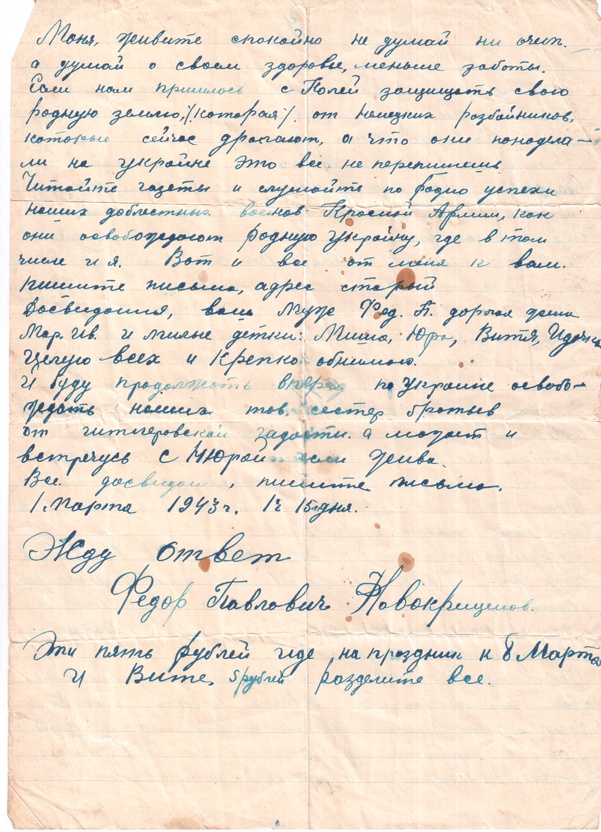 Моня, живите спокойно не думай ни очем.
а думай о своем здоровье, меньше заботы.
Если нам пришлось с Колей защищать свою
родную землю, /которая/. от немецких разбойников,
которые сейчас драпают, а что они понадела-
ли на украйне это все не перепишешь
Читайте газеты и слушайте по радио успехи
наших доблестных воинов Красной Армии, как
они освобождают родную Украйну, где в том
числе и я. Вот и все от меня к вам.
пишите письма, адрес старый
Досвидания, ваш муж Фед. П. дорогая
Мар. Ив. и милые детки: Миша, Юра, Витя, Идочка
Целую всех и Крепко обнимаю.
И буду продолжать вперед по Украине освобо-
ждать наших тов. сестер братьев
от гитлеровской а может и
встречусь с Шурой если жива.
Все досвидан, пишите письма.
1 Марта 1943 г. 1 ч 15 дня.
Жду ответ
Федор Павлович Новокрещенов.
Эти пять рублей Иде на праздник к 8 Марта
И Вите, 5 рублей разделите все.